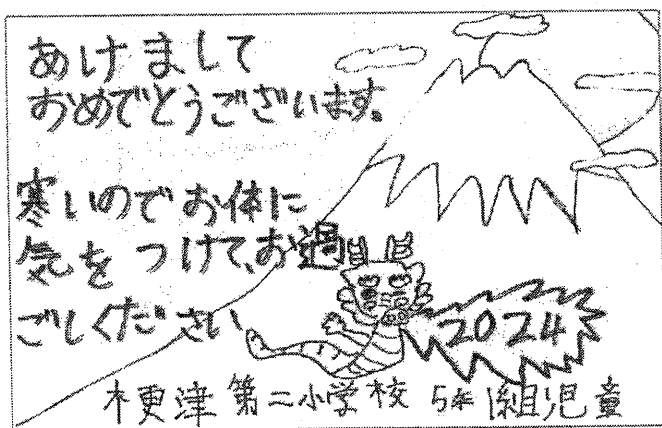 あけまして
おめでとうございます。
寒いのでお体に
気をつけて、お過
ごしください
2024
木更津第二小学校 5年1組児童